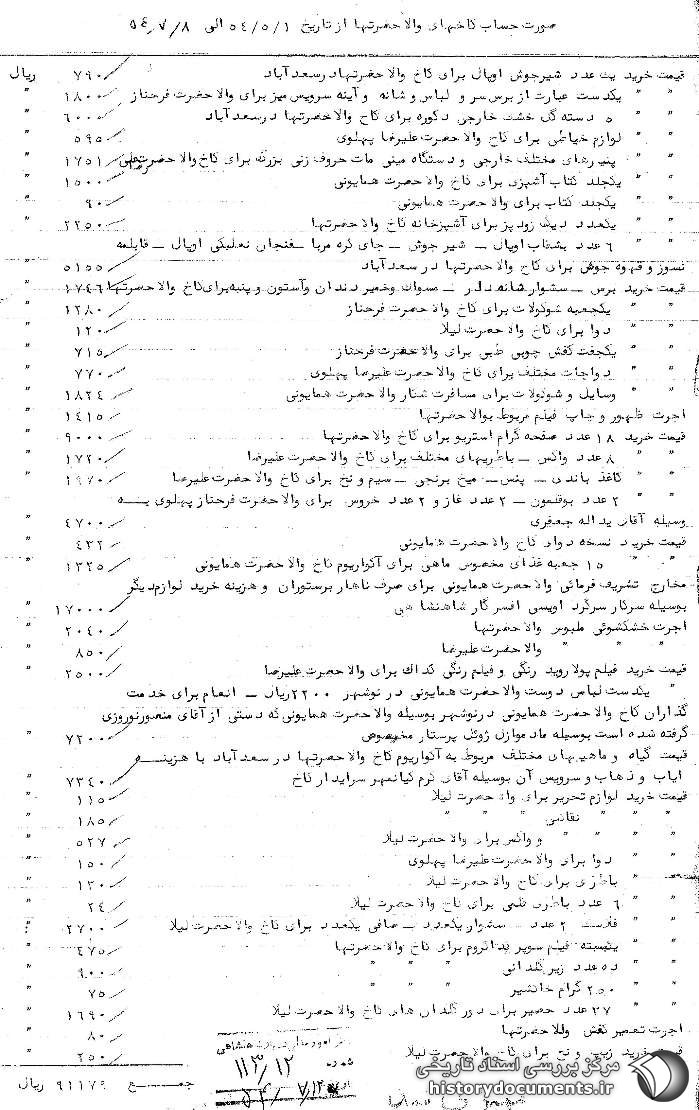 صورت حساب کاخهای والاحضرتها از تاریخ ۵۴/۵/۱ الی ۵۴/۷/۸
قیمت خرید یک عدد شیرجوش اوپال برای کاخ والاحضرتها در سعدآباد ۷۹۰/ ریال
" " یکدست عبارت از برس سر و لباس و شانه و آینه سرویس میز برای والاحضرت فرحناز ۱۸۰۰/ "
" " ۵ دسته گل خشک خارجی دکوره برای کاخ والاحضرتها در سعدآباد ۶۰۰۰/ "
" " لوازم خیاطی برای کاخ والاحضرت علیرضا پهلوی ۵۹۵/ "
" " پنیرهای مختلف خارجی و دستگاه مینی مات حروف زنی بزرگ برای کاخ والاحضرت ۱۷۵۱/ "
" " یکجلد کتاب آشپزی برای کاخ والاحضرت همایونی ۱۵۰۰/ "
" " یکجلد کتاب برای کاخ والاحضرت همایونی ۹۰/ "
" " یکعدد دیگ زودپز برای آشپزخانه کاخ والاحضرتها ۲۲۵۰/ "
" " ۶ عدد بشقاب اوپال – شیر جوش – جای کره مربا – فنجان نعلبکی اوپال – قابلمه
نسوز و قهوه جوش برای کاخ والاحضرتها در سعدآباد ۵۱۵۵/ "
قیمت خرید برس – سشوار شانه‌دار – مسواک وخمیر دندان و آستون و پنبه برای کاخ والاحضرتها ۱۷۴۶/ "
" " یکجعبه شوکولات برای کاخ والاحضرت فرحناز ۱۲۸۰/ "
" " دوا برای کاخ والاحضرت لیلا ۱۲۰/ "
" " یکجفت کفش چوبی طبی برای والاحضرت فرحناز ۷۱۵/ "
" " دواجات مختلف برای کاخ والاحضرت علیرضا پهلوی ۷۷۰/ "
" " وسایل و شوکولات برای مسافرت والاحضرت همایونی ۱۸۲۴/ "
اجرت ظهور و چاپ فیلم مربوط بوالاحضرتها ۱۴۱۵/ "
قیمت خرید ۱۸ عدد صفحه گرام استریو برای کاخ والاحضرتها ۹۰۰۰/ "
" " ۸ عدد واکس – باطریهای مختلف برای کاخ والاحضرت علیرضا ۱۷۲۰/ "
" " کاغذ باندی – پنس – میخ برنجی – سیم و نخ برای کاخ والاحضرت علیرضا ۱۹۷۰/ "
" " ۲ عدد بوقلمون – ۲ عدد غاز و ۲ عدد خروس برای والاحضرت فرحناز پهلوی به
وسیله آقای یداله جعفری ۴۷۰۰/ "
قیمت خرید نسخه دوای کاخ والاحضرت همایونی ۴۳۲/ "
" " ۱۵ جعبه غذای مخصوص ماهی برای آکواریوم کاخ والاحضرت همایونی ۱۳۲۵/ "
مخارج تشریف فرمائی والاحضرت همایونی برای صرف ناهار برستوران و هزینه خرید لوازم دیگر
بوسیله سرکار سرگرد اویسی افسر گارد شاهنشاهی ۱۷۰۰۰/ "
اجرت خشکشوئی ملبوس والاحضرتها ۲۰۴۰/ "
" " " والاحضرت علیرضا ۸۵۰/ "
قیمت خرید فیلم پولاروید رنگی و فیلم رنگی کداک برای والاحضرت علیرضا ۲۵۰۰/ "
" " یکدست لباس دوست والاحضرت همایونی در نوشهر ۲۲۰۰ ریال – انعام برای خدمت
گذاران کاخ والاحضرت همایونی در نوشهر بوسیله والاحضرت همایونی که دستی از آقای منصورنوروزی
گرفته شده است بوسیله مادموازل ژوئل پرستار مخصوص ۷۲۰۰/ "
قیمت گیاه و ماهیهای مختلف مربوط به آکواریوم کاخ والاحضرتها در سعدآباد با هزینه
ایاب و ذهاب و سرویس آن بوسیله آقای کرم کیانمهر سرایدار کاخ ۷۳۴۰/ "
قیمت خرید لوازم تحریر برای والاحضرت لیلا ۱۱۵/ "
" " " نقاشی " " " ۱۸۵/ "
" " " " و واکس برای والاحضرت لیلا ۵۲۷/ "
" " دوا برای والاحضرت علیرضا پهلوی ۱۵۰/ "
" " باطری برای کاخ والاحضرت لیلا ۱۲۰/ "
" " ۶ عدد باطری قلمی برای کاخ والاحضرت لیلا ۲۴/ "
" " فلاسک ۲ عدد – سشوار یکعدد – صافی یکعدد برای کاخ والاحضرت لیلا ۲۷۰۰/ "
" " یکبسته فیلم سوپر پداکروم برای کاخ والاحضرتها ۴۷۵/ "
" " ده عدد زیر گلدانی " " " ۹۰۰/ "
" " ۲۵۰ گرام خاکشیر " " " ۷۵/ "
" " ۲۷ عدد حصیر برای دور گلدان های کاخ والاحضرت لیلا ۱۶۹۰/ "
اجرت تعمیر کفش والاحضرتها ۸۰/ "
قیمت خرید زیپ و نخ برای کاخ والاحضرت لیلا ۲۵۰/ "
جمع ۹۱۱۷۹ ریال
شماره ۱۱۳/۱۲
مرکز بررسی اسناد تاریخی
historydocuments.ir